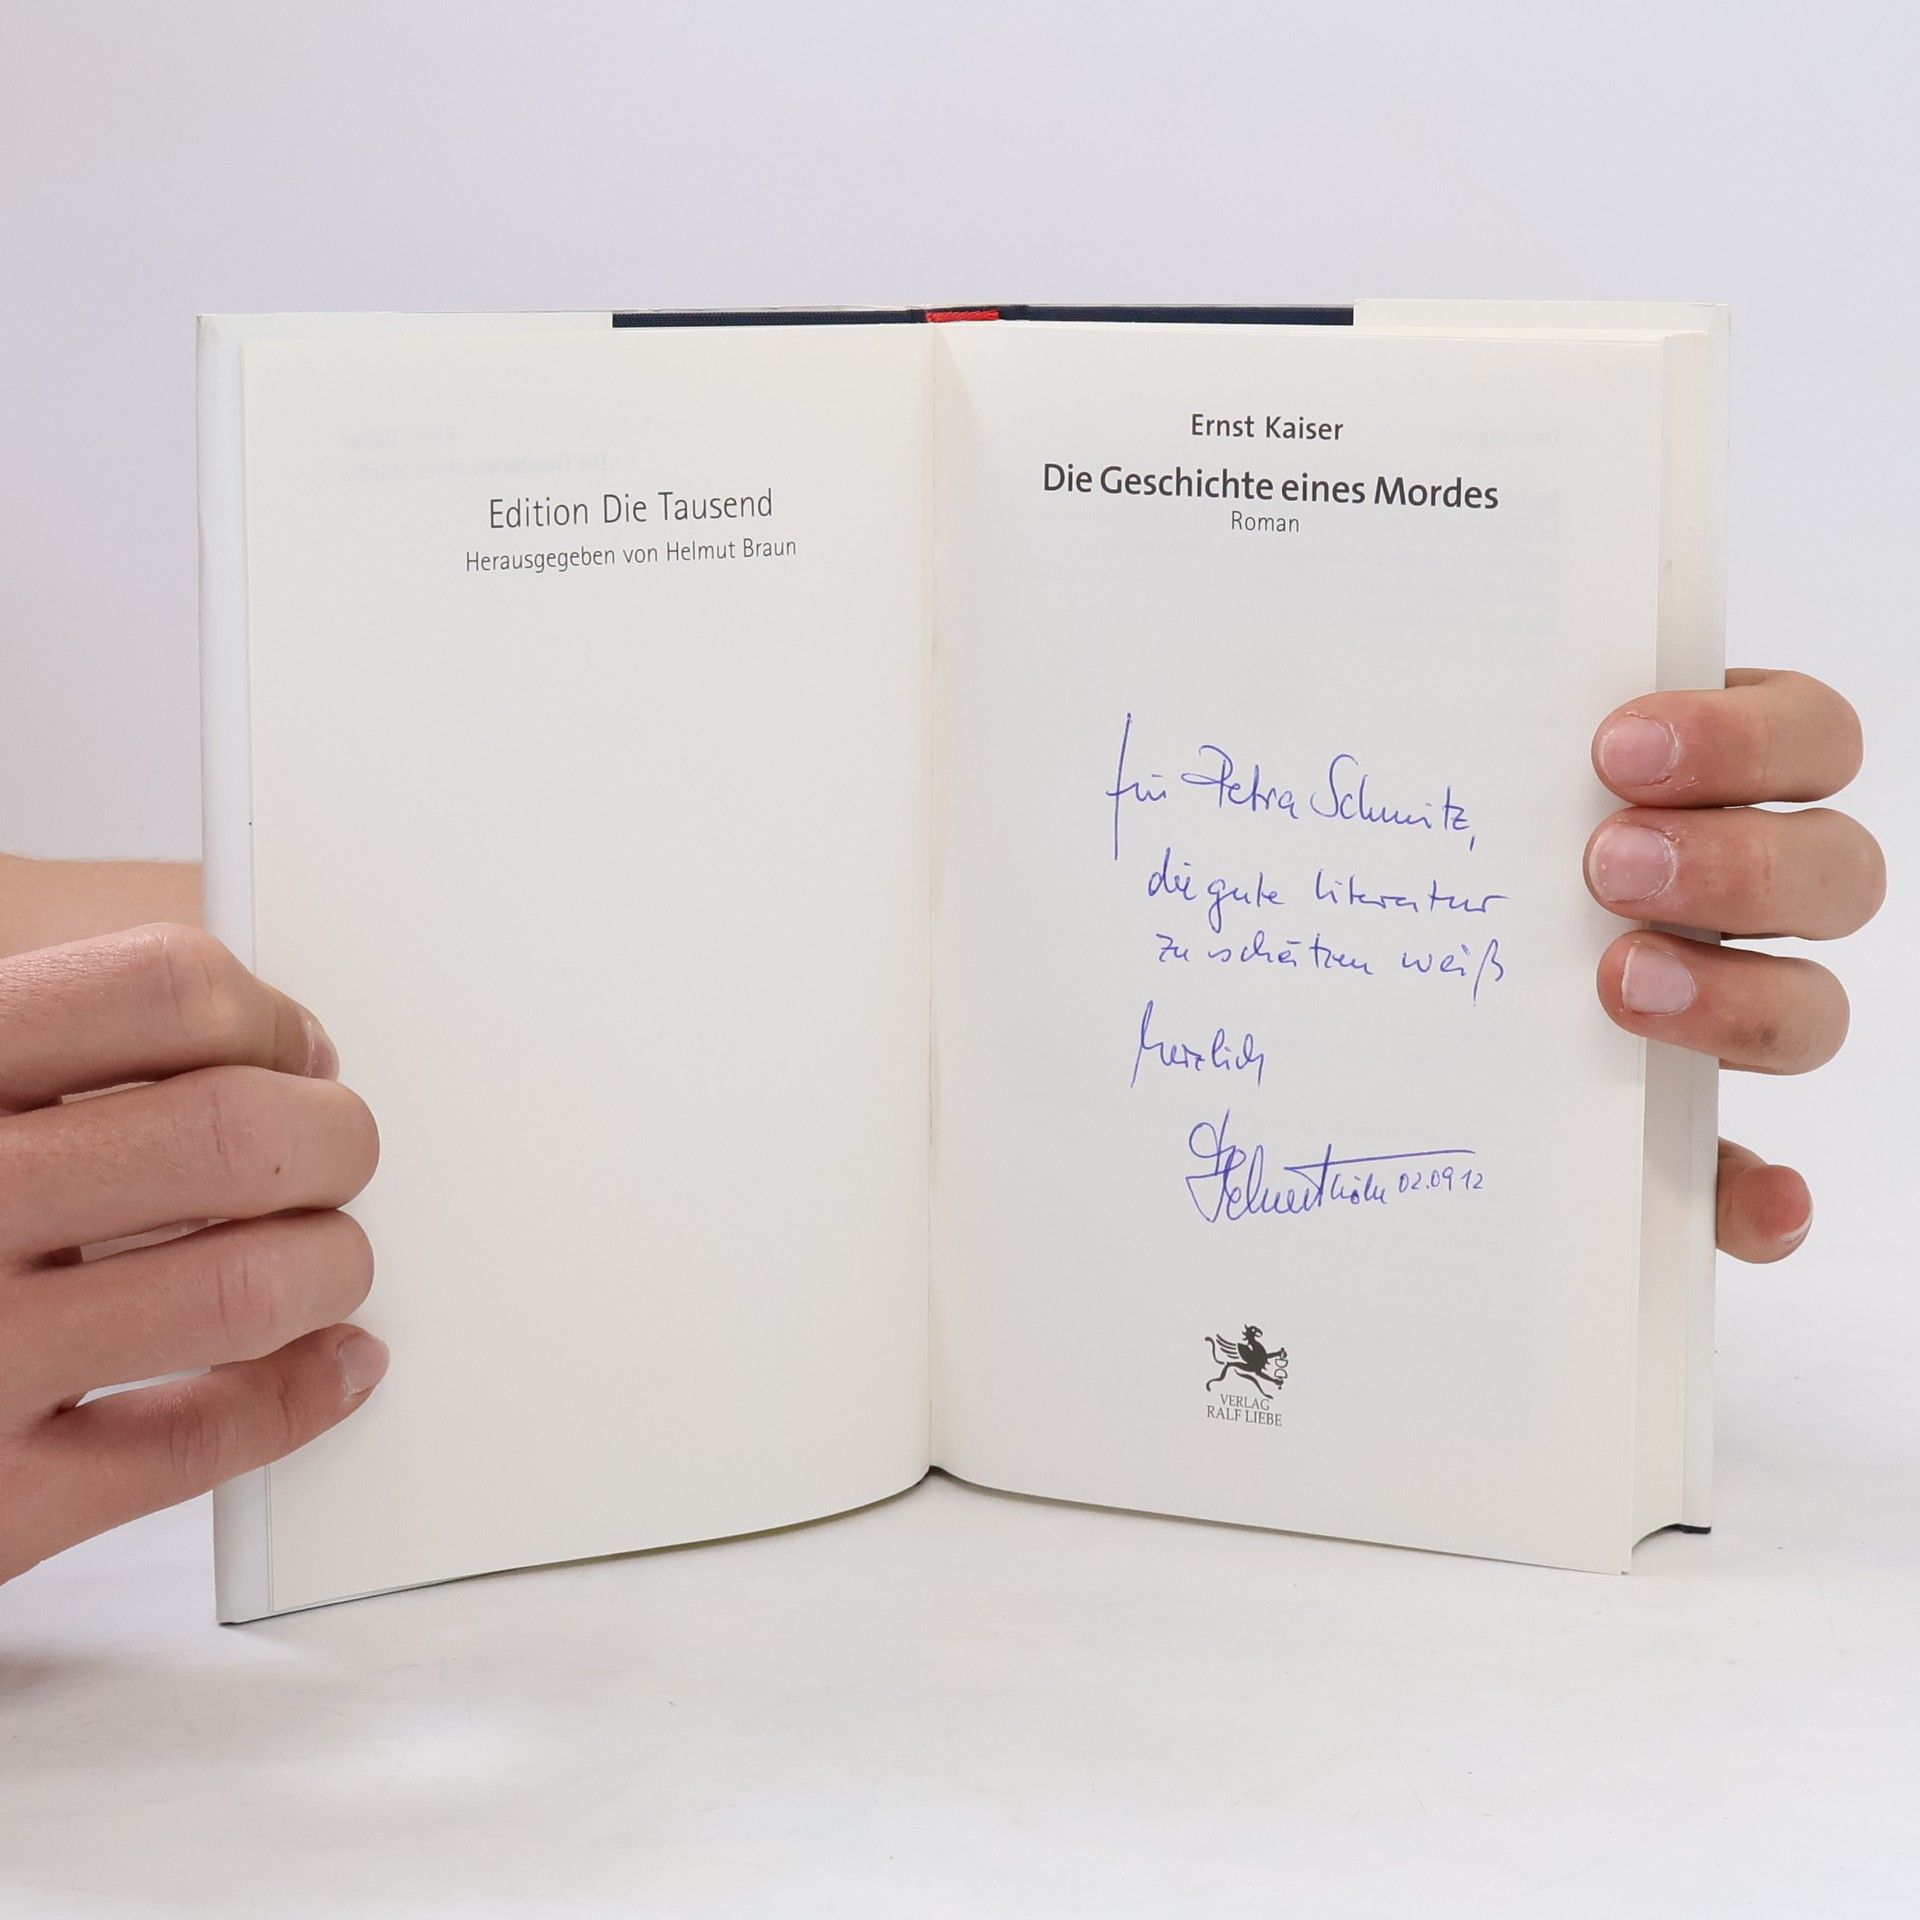 Edition Die Tausend
Herausgegeben von Helmut Braun
Ernst Kaiser
Die Geschichte eines Mordes
Roman
für Petra Schmitz,
die gute Literatur
zu schätzen weiß
herzlich
02.09.12
VERLAG
RALF LIEBE